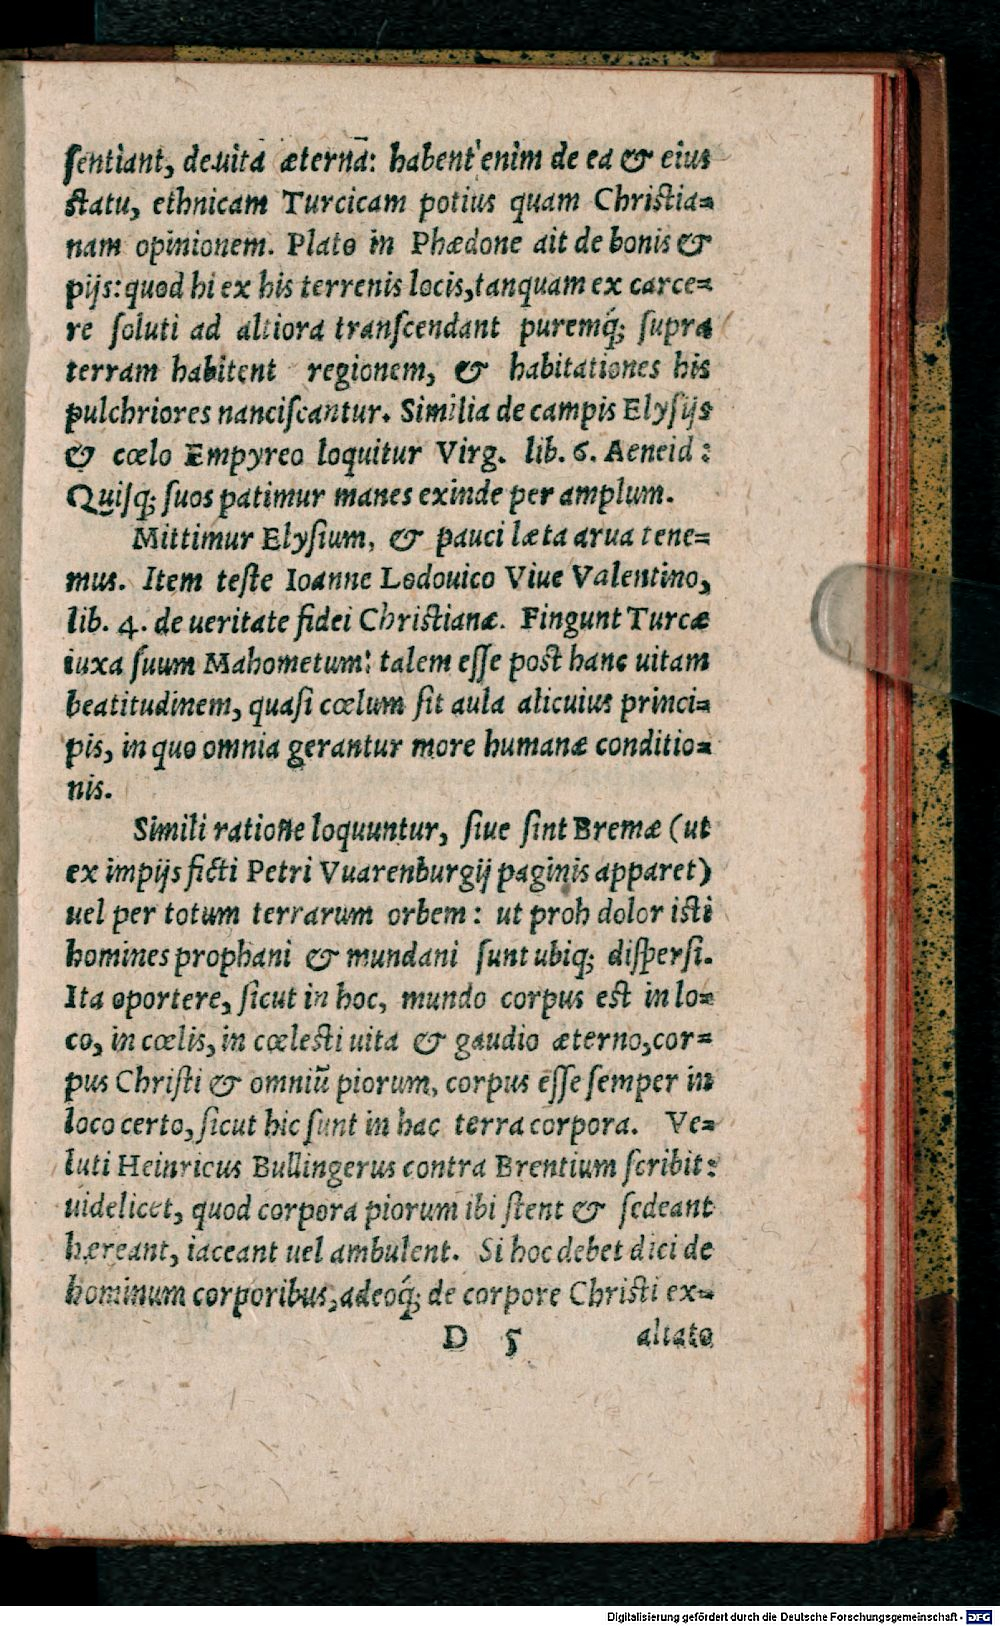 sentiant, de uita æterna: habent enim de ea & eius
statu, ethnicam Turcicam potius quam Christia=
nam opinionem. Plato in Phædone ait de bonis &
pijs: quod hi ex his terrenis locis, tanquam ex carce=
re soluti ad altiora transcendant puremq́; supra
terram habitent regionem, & habitationes his
pulchriores nanciscantur. Similia de campis Elysijs
& cœlo Empyreo loquitur Virg. lib. 6. Aeneid:
Quisq; suos patimur manes exinde per amplum.
Mittimur Elysium, & pauci læta arua tene=
mus. Item teste Ioanne Lodouico Viue Valentino,
lib. 4. de ueritate fidei Christianæ. Fingunt Turcæ
iuxa suum Mahometum: talem esse post hanc uitam
beatitudinem, quasi cœlum sit aula alicuius princi=
pis, in quo omnia gerantur more humanæ conditio=
nis.
Simili ratione loquuntur, siue sint Bremæ (ut
ex impijs ficti Petri Vuarenburgij paginis apparet)
uel per totum terrarum orbem: ut proh dolor isti
homines prophani & mundani sunt ubiq; dispersi.
Ita oportere, sicut in hoc, mundo corpus est in lo=
co, in cœlis, in cœlesti uita & gaudio æterno, cor=
pus Christi & omniū piorum, corpus esse semper in
loco certo, sicut hic sunt in hac terra corpora. Ve=
luti Heinricus Bullingerus contra Brentium scribit:
uidelicet, quod corpora piorum ibi stent & sedeant
hæreant, iaceant uel ambulent. Si hoc debet dici de
hominum corporibus, adeoq́; de corpore Christi ex=
D 5 altato
Digitalisierung gefördert durch die Deutsche Forschungsgemeinschaft - DFG